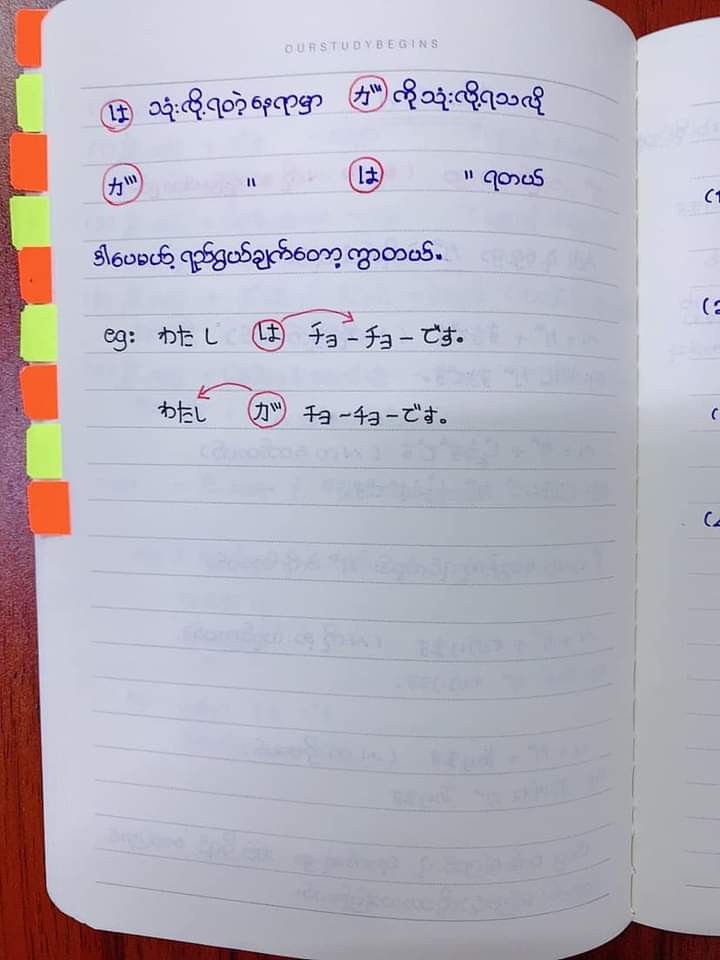 OURSTUDYBEGINS
は သုံးလို့ရတဲ့နေရာမှာ ガ ကိုသုံးလို့ရသလို
ガ " は " ရတယ်
ဒါပေမယ့် ရည်ရွယ်ချက်တော့ ကွာတယ်။
eg: わたし は チョーチョーです。
わたし ガ チョーチョーです。
(1
(2
(
(4